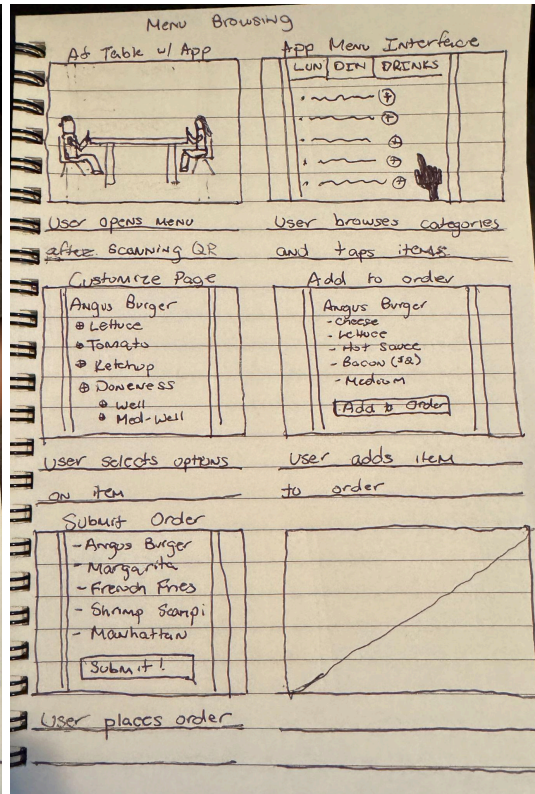 Menu Browsing
At Table w/ App
App Menu Interface
LUN DIN DRINKS
User opens menu
after scanning QR
User browses categories
and taps items.
Customize Page
Angus Burger
Lettuce
Tomato
Ketchup
Doneness
Well
Med-Well
User selects options
on item
Add to order
Angus Burger
- Cheese
- Lettuce
- Hot Sauce
- Bacon ($2)
- Medium
Add to Order
User adds item
to order
Submit Order
- Angus Burger
- Margarita
- French Fries
- Shrimp Scampi
- Manhattan
Submit!
User places order